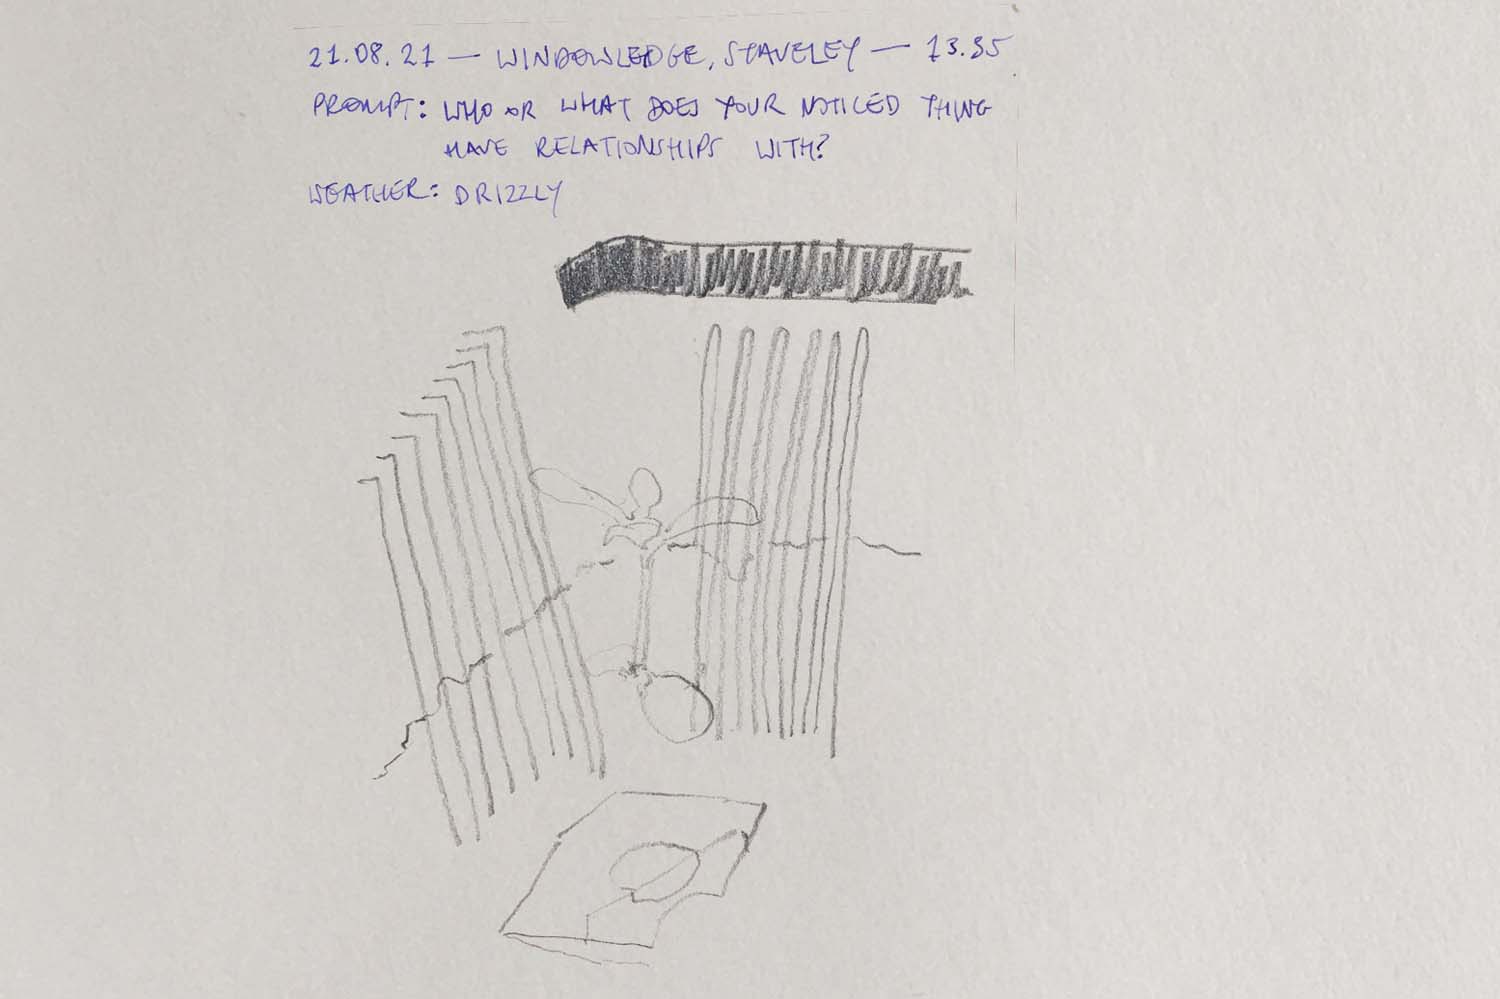 21.08.21 — WINDOWLEDGE, STAVELEY — 13.35
PROMPT: WHO OR WHAT DOES YOUR NOTICED THING
HAVE RELATIONSHIPS WITH?
WEATHER: DRIZZLY